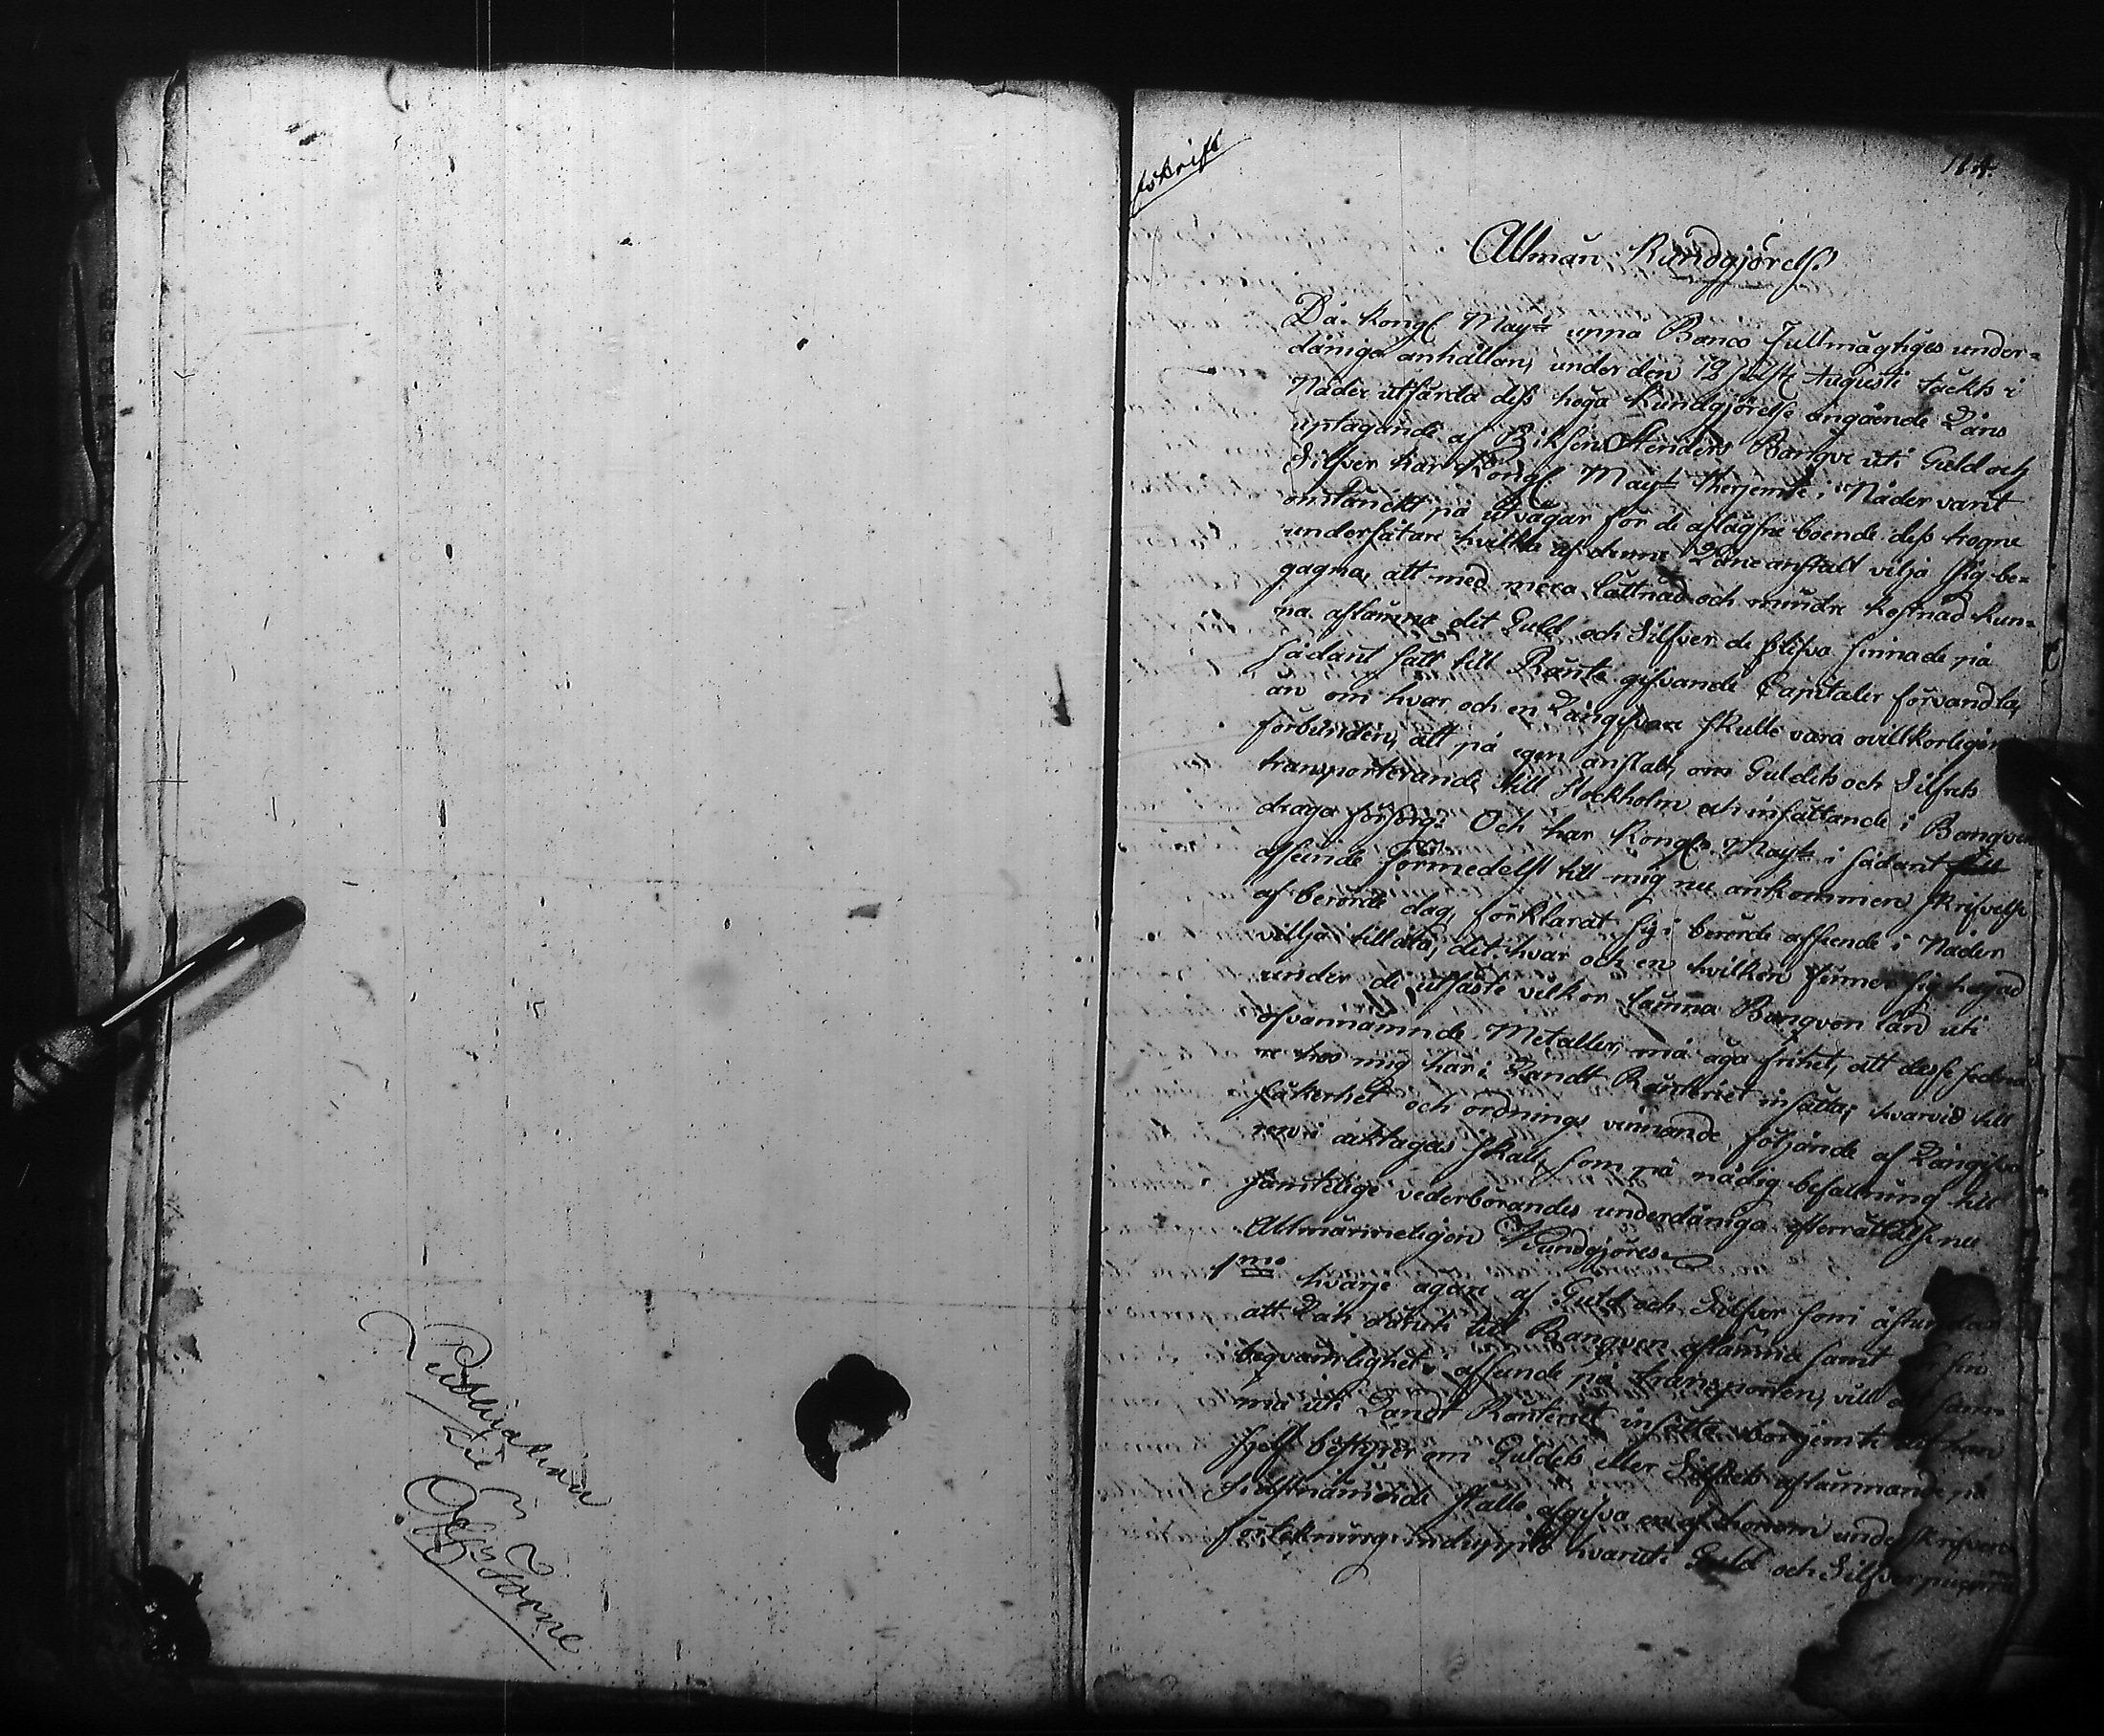 Publication
til
Öfvertorne
Afskrift
114.
Allmän Kundgjörelse
Då Kongl May:t uppå Banco Fullmägtiges under=
dåniga anhållan, under den 19 sidstl. Augusti täckts i
Nåder utfärda dess höga Kundgjörelse angående Låns
uptagande af Riksens Ständers Banque uti Guld och
Silfver har Kongl May:t therjemte i Nåder varit
omtänckt på utvägar för de aflägsne boende dess trogne
undersåtare hvilka af denne Låneanstalt vilja sig be=
gagna, att med mera lättnad och mindre kostnad kun=
na aflämna det Guld och Silfver de blifva sinnade på
sådant sätt till Ränte gifvande Capitaler förvandla,
än om hvar och en Långifvare skulle vara ovillkorligen
förbunden, att på egen anstalt, om Guldets och Silfrets
transporterande till Stockholm och insättande i Banquen
draga försorg: Och har Kongl May:t i sådant
afseende förmedelst till mig nu ankommen skrifvelse
af berörde dag, förklarat sig i berörde afseende i Nåder
vilja tillåta, det hvar och en hvilken finner sig hugad
under de utfäste vilkor lämna Banquen lån uti
ofvannämnde Metaller, må äga frihet, att desse sedna
re hos mig här i Landt Ränteriet insätta; hvarvid till
säkerhet och ordnings vinnande följande af Långifva
ren i akttagas skall, som på nådig befallning till
samtelige vederbörandes underdåniga efterrättelse nu
Allmänneligen Kundgjöres.
1:mo hvarje ägare af Guld och Silfver som åstundar
att Lån däruti till Banquen aflämna samt för sin
beqvämlighet i afseende på transporten, vill det sam=
ma uti Landt Ränteriet insätta, börjemte att han
sjelf bestyrer om Guldets eller Silfrets aflämnande på
sidstnämnde ställe afgifva en af honom underskrifven
förtekning in duplo hvaruti Guld och Silfverpiecerne